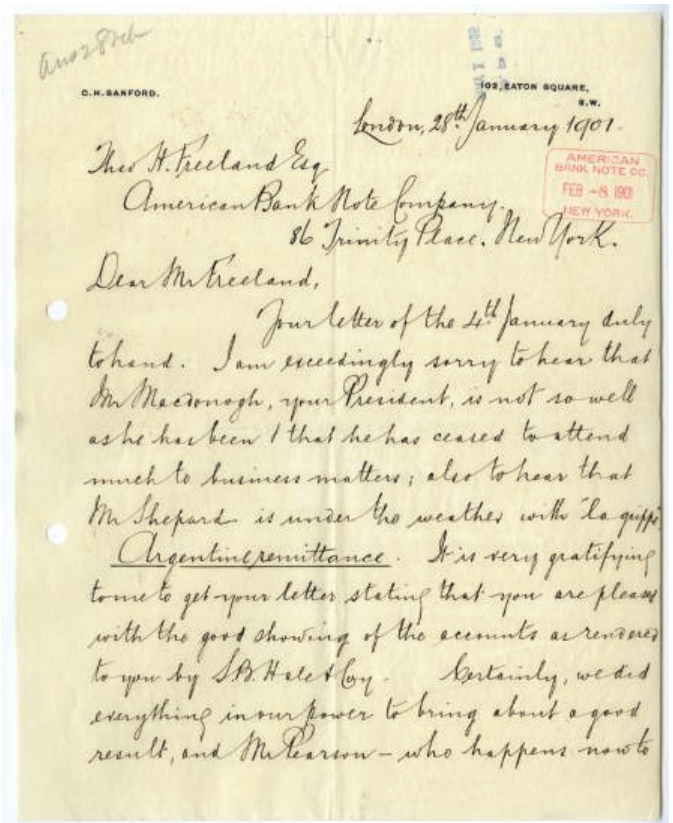 C.H. SANFORD.
102, EATON SQUARE,
S.W.
London, 28th January 1901.
Theo H. Freeland Esq
American Bank Note Company.
86 Trinity Place. New York.
AMERICAN
BANK NOTE CO.
FEB -8 1901
NEW YORK.
Dear Mr Freeland,
Your letter of the 4th January duly
to hand. I am exceedingly sorry to hear that
Mr Macdonogh, your President, is not so well
as he has been & that he has ceased to attend
much to business matters; also to hear that
Mr Shepard is under the weather with "la grippe"
Argentine remittance. It is very gratifying
to me to get your letter stating that you are pleased
with the good showing of the accounts as rendered
to you by S.B. Hale & Coy. Certainly, we did
everything in our power to bring about a good
result, and Mr Pearson – who happens now to